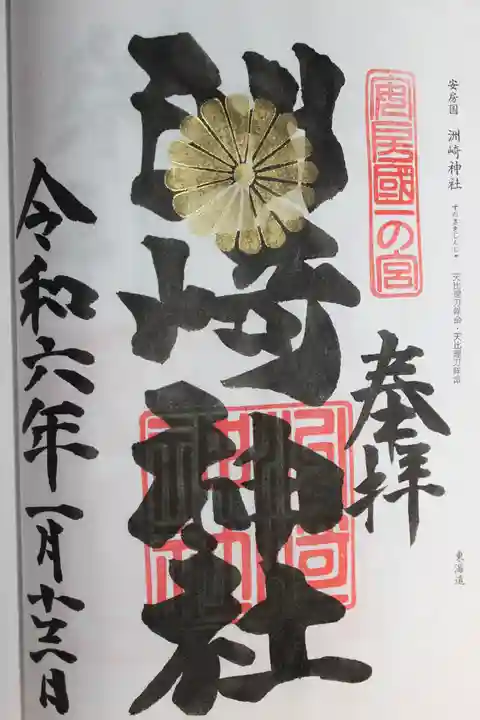 安房国 洲崎神社
すのさきじんじゃ
天比理乃咩命・天比理刀咩命
東海道
安房國一の宮
奉拝
洲崎神社
令和六年一月十三日